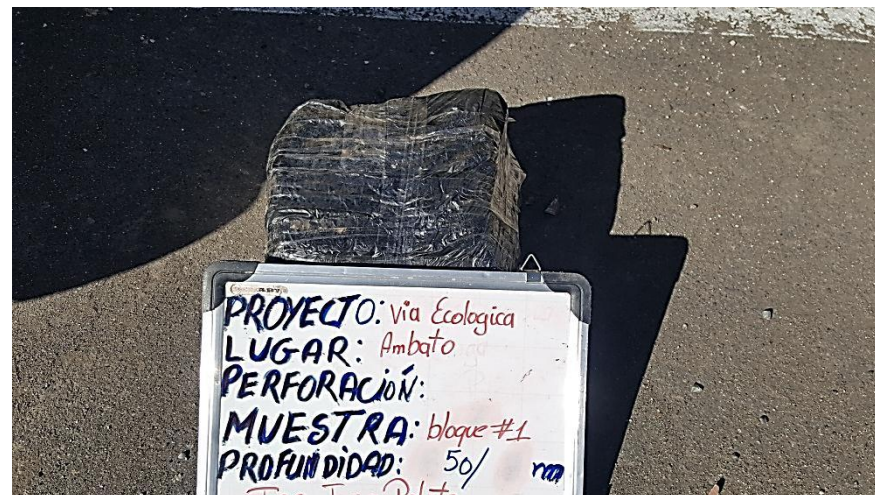 PROYECTO: Via Ecologica
LUGAR: Ambato
PERFORACIÓN:
MUESTRA: bloque #1
PROFUNDIDAD: 50/ m